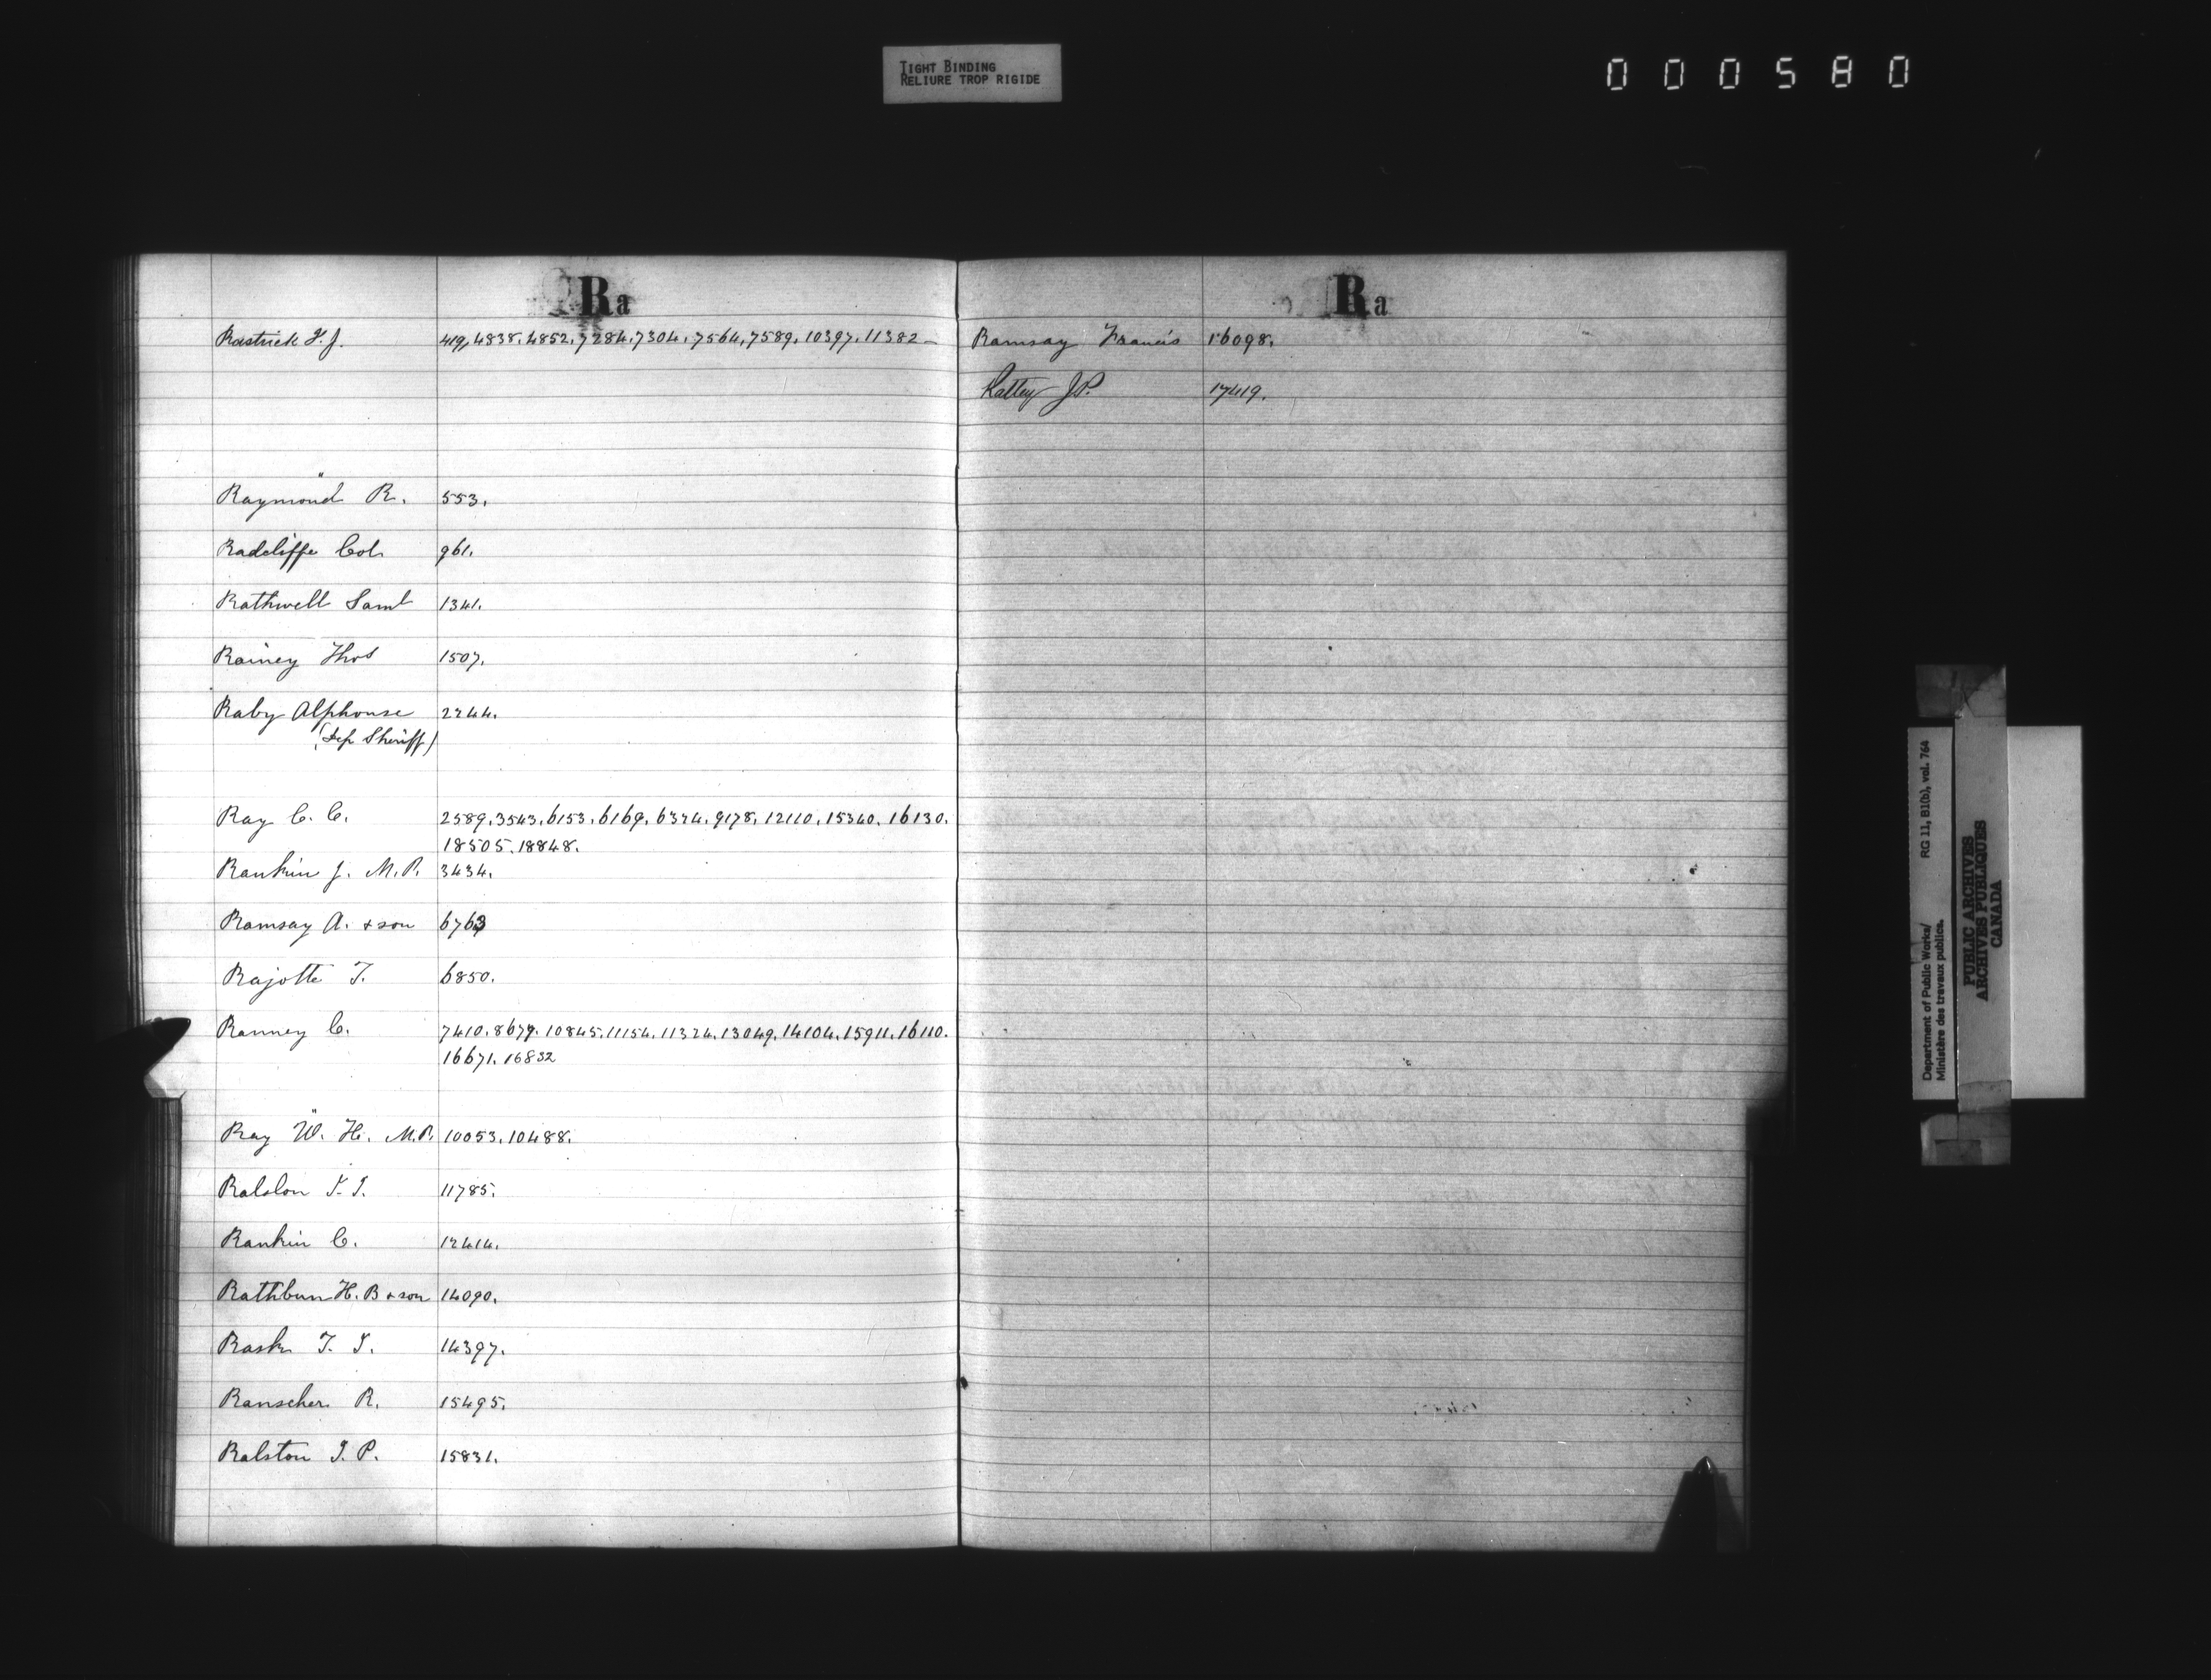 TIGHT BINDING
RELIURE TROP RIGIDE
000580
Ra
Rastrick F. J. 419, 4838. 4852. 7284. 7304. 7564, 7589. 10397. 11382
Raymond R. 553.
Radcliffe Col. 961.
Rathwell Saml 1341.
Rainey Thos 1507.
Raby Alphonse 2244.
(Dep Sheriff)
Ray C. C. 2589. 3543. 6153. 6169. 6324. 9178. 12110. 15340. 16130.
18505. 18848.
Rankin J. M.P. 3434.
Ramsay A. & son 6763
Rajotte T. 6850.
Ranney C. 7410. 8679. 10845. 11154. 11324. 13049. 14104. 15911. 16110.
16671. 16832
Ray W. H. M.P. 10053. 10488.
Ralston 11785.
Rankin C. 12414.
Rathbun H. B & son 14090.
Rask 14397.
Ranscher R. 15495.
Ralston J. P. 15831.
Ra
Ramsay Francis 16098.
Rattey J P. 17419.
Department of Public Works/ RG 11, B1(b), vol. 764
Ministère des travaux publics.
PUBLIC ARCHIVES
ARCHIVES PUBLIQUES
CANADA